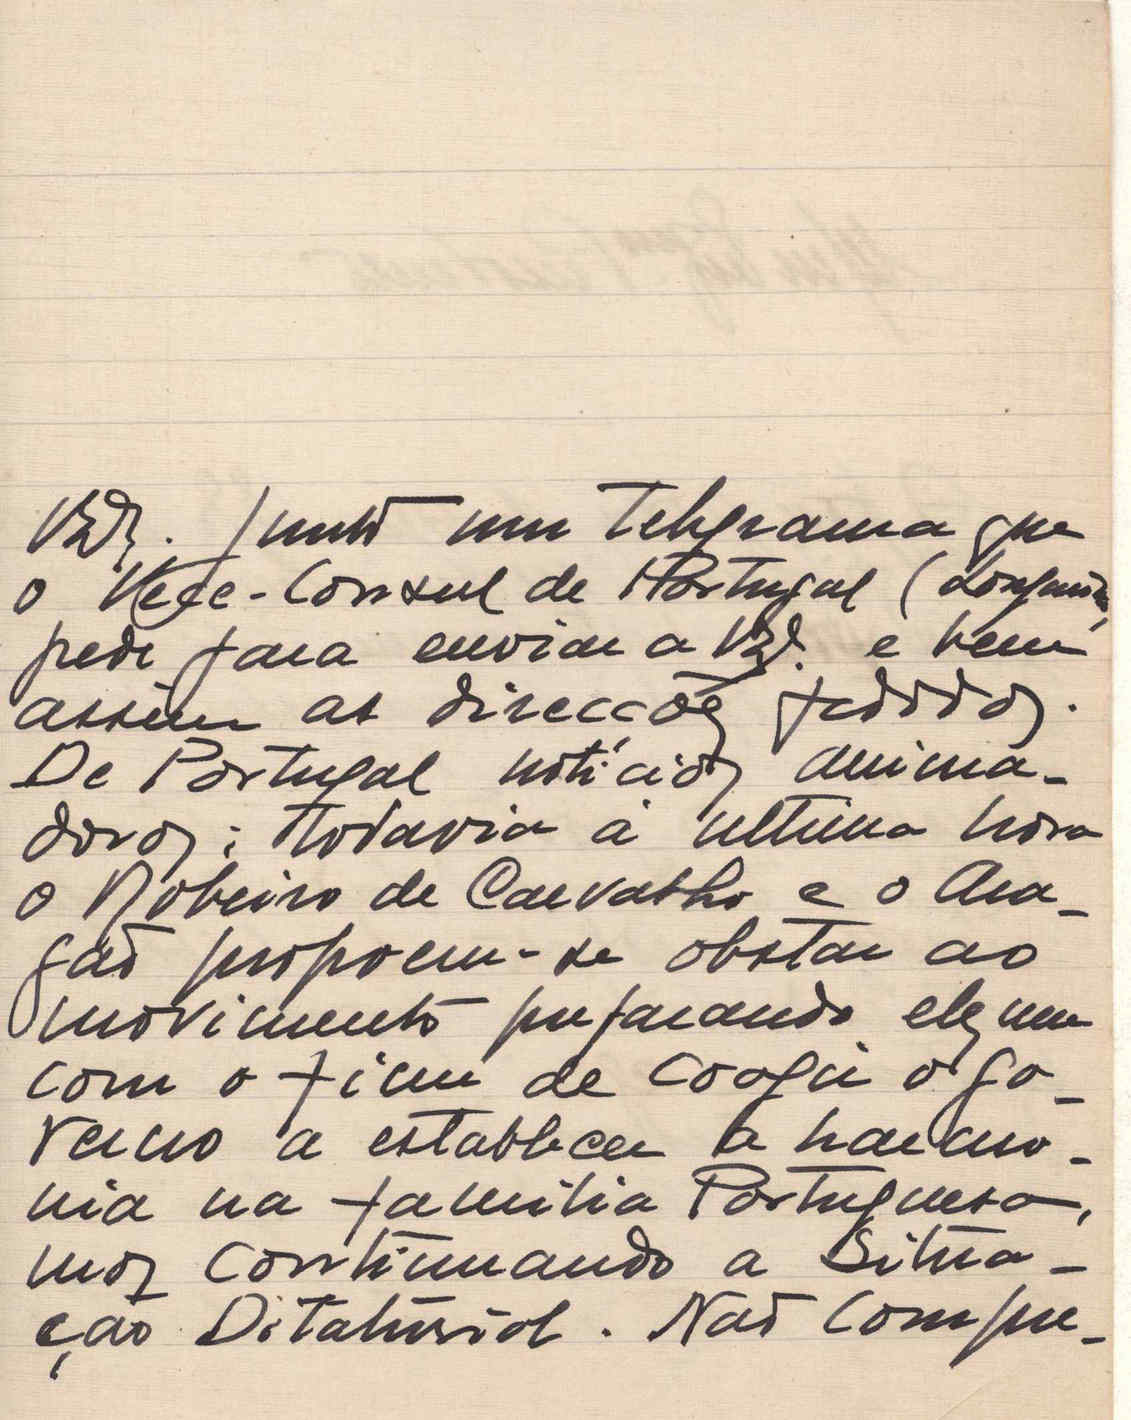 junto um telegrama que
o Vece-Consul de Portugal (
pede para enviar a e bem
assim as direcções pedidas.
De Portugal notícias anima-
doras; todavia á ultima hora
o Ribeiro de Carvalho e o Ara-
gão propoem-se obstar ao
movimento preparando eles um
com o fim de coagir o go-
verno a establecer a harmo-
nia na familia Portuguesa,
mas continuando a Situa-
ção Ditaturial. Não compre-